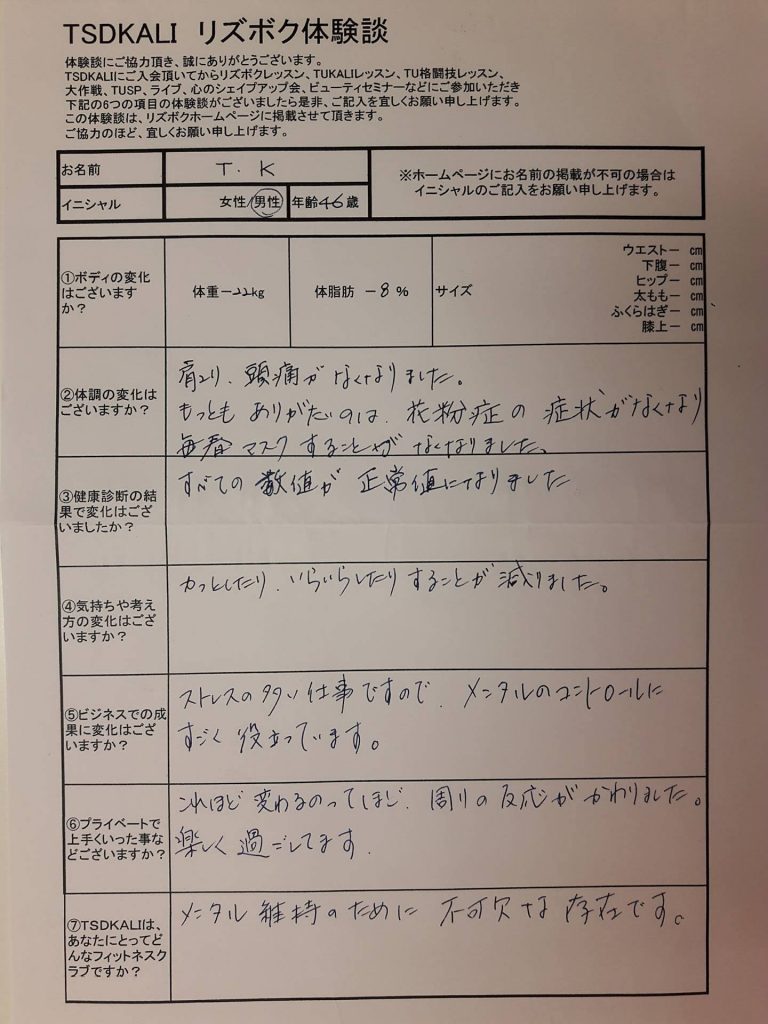 TSDKALI リズボク体験談
体験談にご協力頂き、誠にありがとうございます。
TSDKALIにご入会頂いてからリズボクレッスン、TUKALIレッスン、TU格闘技レッスン、
大作戦、TUSP、ライブ、心のシェイプアップ会、ビューティセミナーなどにご参加いただき
下記の6つの項目の体験談がございましたら是非、ご記入を宜しくお願い申し上げます。
この体験談は、リズボクホームページに掲載させて頂きます。
ご協力のほど、宜しくお願い申し上げます。
お名前 T. K
※ホームページにお名前の掲載が不可の場合は
イニシャルのご記入をお願い申し上げます。
イニシャル 女性/男性 年齢46歳
①ボディの変化
はございます
か?
体重-22kg
体脂肪 -8%
サイズ
ウエスト- cm
下腹- cm
ヒップ- cm
太もも- cm
ふくらはぎ- cm
膝上- cm
②体調の変化は
ございますか?
肩こり、頭痛がなくなりました。
もっともありがたいのは、花粉症の症状がなくなり
毎春マスクすることがなくなりました。
③健康診断の結
果で変化はござ
いましたか?
すべての数値が正常値になりました
④気持ちや考え
方の変化はござ
いますか?
カッとしたり、いらいらしたりすることが減りました。
⑤ビジネスでの成
果に変化はござ
いますか?
ストレスの多い仕事ですので、メンタルのコントロールに
すごく役立っています。
⑥プライベートで
上手くいった事な
どございますか?
これほど変わるのってほど、周りの反応がかわりました。
楽しく過ごしてます.
⑦TSDKALIは、
あなたにとってど
んなフィットネスク
ラブですか?
メンタル維持のために不可欠な存在です。